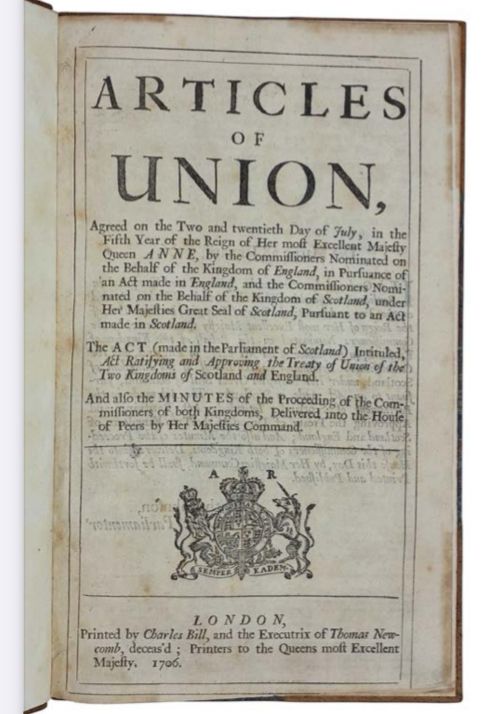 ARTICLES
OF
UNION,
Agreed on the Two and twentieth Day of July, in the
Fifth Year of the Reign of Her moſt Excellent Majeſty
Queen ANNE, by the Commiſſioners Nominated on
the Behalf of the Kingdom of England, in Purſuance of
an Act made in England, and the Commiſſioners Nomi-
nated on the Behalf of the Kingdom of Scotland, under
Her Majeſties Great Seal of Scotland, Purſuant to an Act
made in Scotland.
The ACT (made in the Parliament of Scotland) Intituled,
Act Ratifying and Approving the Treaty of Union of the
Two Kingdoms of Scotland and England.
And alſo the MINUTES of the Proceeding of the Com-
miſſioners of both Kingdoms, Delivered into the Houſe
of Peers by Her Majeſties Command.
A R
SEMPER EADEM
LONDON,
Printed by Charles Bill, and the Executrix of Thomas New-
comb, deceas'd; Printers to the Queens moſt Excellent
Majeſty. 1706.